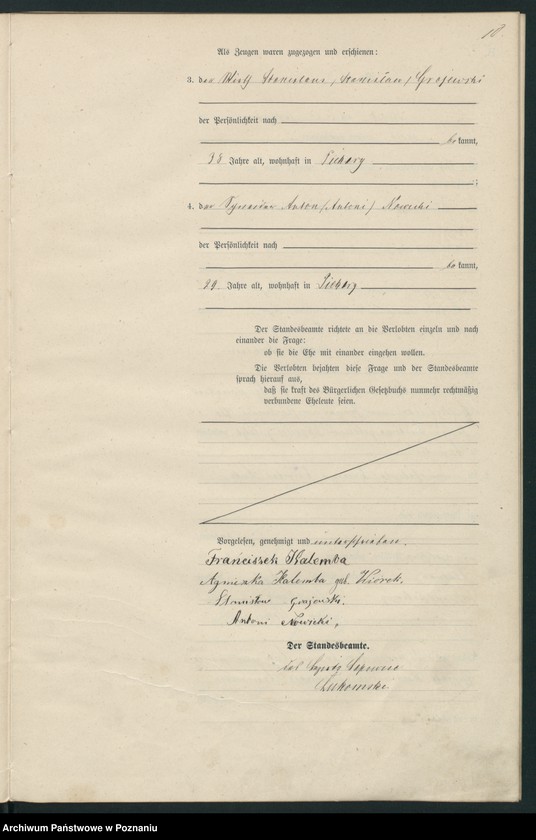 10
Als Zeugen waren zugezogen und erschienen:
3. der Wirth Stanislaus /Stanislaw/ Grajewski
der Persönlichkeit nach
bekannt,
Jahre alt, wohnhaft in Piekary
;
4. der Anton /Antoni/ Nowicki
der Persönlichkeit nach
bekannt,
29 Jahre alt, wohnhaft in Piekary
Der Standesbeamte richtete an die Verlobten einzeln und nach
einander die Frage:
ob sie die Ehe mit einander eingehen wollen.
Die Verlobten bejahten diese Frage und der Standesbeamte
sprach hierauf aus,
daß sie kraft des Bürgerlichen Gesetzbuchs nunmehr rechtmäßig
verbundene Eheleute seien.
Vorgelesen, genehmigt und unterschrieben.
Franciszek Kalemba
Agnieszka Kalemba geb. Kiorek.
Stanisław Grajewski.
Antoni Nowicki.
Der Standesbeamte.
Łukomski
Archiwum Państwowe w Poznaniu